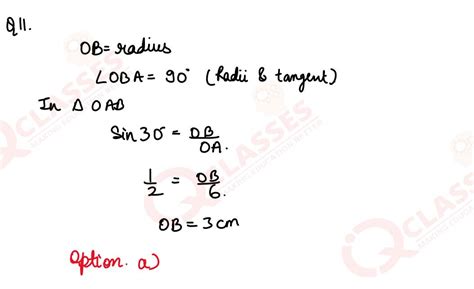 Q11.
OB = radius
∠OBA = 90° (Radii & tangent)
In Δ OAB
Sin 30° = OB/OA.
1/2 = OB/6.
OB = 3 cm
Option. a)
CLASSES
MAKING EDUCATION BETTER
QCLASSES